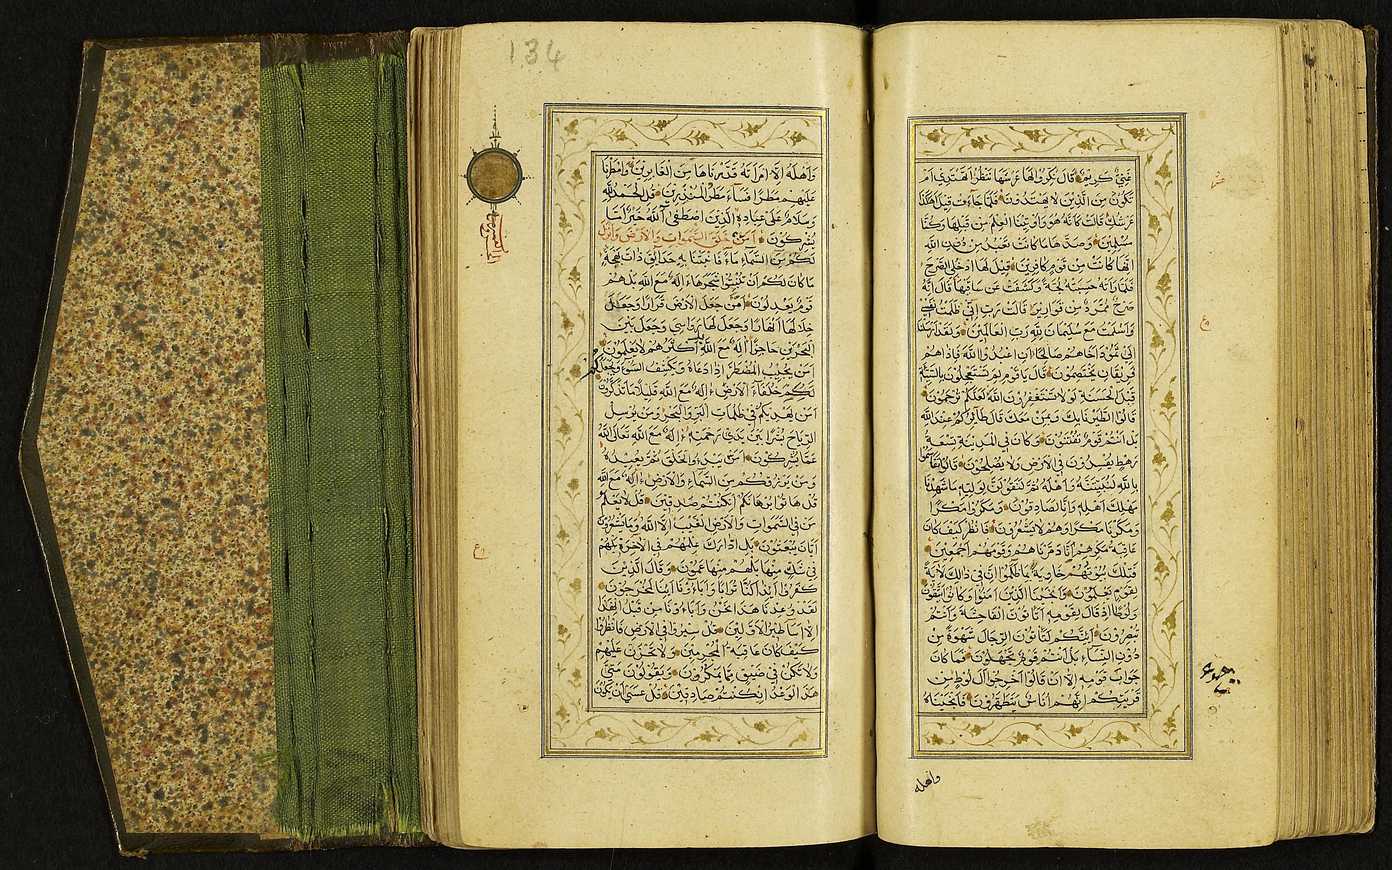 غَنِيٌّ كَرِيمٌ قَالَ نَكِّرُوا لَهَا عَرْشَهَا نَنْظُرْ اَتَهْتَدِي اَمْ
تَكُونُ مِنَ الَّذِينَ لَا يَهْتَدُونَ فَلَمَّا جَاءَتْ قِيلَ اَهٰكَذَا
عَرْشُكِ قَالَتْ كَاَنَّهُ هُوَ وَاُوتِينَا الْعِلْمَ مِنْ قَبْلِهَا وَكُنَّا
مُسْلِمِينَ وَصَدَّهَا مَا كَانَتْ تَعْبُدُ مِنْ دُونِ اللهِ
اِنَّهَا كَانَتْ مِنْ قَوْمٍ كَافِرِينَ قِيلَ لَهَا ادْخُلِي الصَّرْحَ
فَلَمَّا رَاَتْهُ حَسِبَتْهُ لُجَّةً وَكَشَفَتْ عَنْ سَاقَيْهَا قَالَ اِنَّهُ
صَرْحٌ مُمَرَّدٌ مِنْ قَوَارِيرَ قَالَتْ رَبِّ اِنِّي ظَلَمْتُ نَفْسِي
وَاَسْلَمْتُ مَعَ سُلَيْمَانَ لِلّٰهِ رَبِّ الْعَالَمِينَ وَلَقَدْ اَرْسَلْنَا
اِلٰى ثَمُودَ اَخَاهُمْ صَالِحًا اَنِ اعْبُدُوا اللهَ فَاِذَا هُمْ
فَرِيقَانِ يَخْتَصِمُونَ قَالَ يَا قَوْمِ لِمَ تَسْتَعْجِلُونَ بِالسَّيِّئَةِ
قَبْلَ الْحَسَنَةِ لَوْلَا تَسْتَغْفِرُونَ اللهَ لَعَلَّكُمْ تُرْحَمُونَ
قَالُوا اطَّيَّرْنَا بِكَ وَبِمَنْ مَعَكَ قَالَ طَائِرُكُمْ عِنْدَ اللهِ
بَلْ اَنْتُمْ قَوْمٌ تُفْتَنُونَ وَكَانَ فِي الْمَدِينَةِ تِسْعَةُ
رَهْطٍ يُفْسِدُونَ فِي الْاَرْضِ وَلَا يُصْلِحُونَ قَالُوا تَقَاسَمُوا
بِاللهِ لَنُبَيِّتَنَّهُ وَاَهْلَهُ ثُمَّ لَنَقُولَنَّ لِوَلِيِّهِ مَا شَهِدْنَا
مَهْلِكَ اَهْلِهِ وَاِنَّا لَصَادِقُونَ وَمَكَرُوا مَكْرًا
وَمَكَرْنَا مَكْرًا وَهُمْ لَا يَشْعُرُونَ فَانْظُرْ كَيْفَ كَانَ
عَاقِبَةُ مَكْرِهِمْ اَنَّا دَمَّرْنَاهُمْ وَقَوْمَهُمْ اَجْمَعِينَ
فَتِلْكَ بُيُوتُهُمْ خَاوِيَةً بِمَا ظَلَمُوا اِنَّ فِي ذٰلِكَ لَاٰيَةً
لِقَوْمٍ يَعْلَمُونَ وَاَنْجَيْنَا الَّذِينَ اٰمَنُوا وَكَانُوا يَتَّقُونَ
وَلُوطًا اِذْ قَالَ لِقَوْمِهِ اَتَاْتُونَ الْفَاحِشَةَ وَاَنْتُمْ
تُبْصِرُونَ اَئِنَّكُمْ لَتَاْتُونَ الرِّجَالَ شَهْوَةً مِنْ
دُونِ النِّسَاءِ بَلْ اَنْتُمْ قَوْمٌ تَجْهَلُونَ فَمَا كَانَ
جَوَابَ قَوْمِهِ اِلَّا اَنْ قَالُوا اَخْرِجُوا اٰلَ لُوطٍ مِنْ
قَرْيَتِكُمْ اِنَّهُمْ اُنَاسٌ يَتَطَهَّرُونَ فَاَنْجَيْنَاهُ
واهله
134
وَاَهْلَهُ اِلَّا امْرَاَتَهُ قَدَّرْنَاهَا مِنَ الْغَابِرِينَ وَاَمْطَرْنَا
عَلَيْهِمْ مَطَرًا فَسَاءَ مَطَرُ الْمُنْذَرِينَ قُلِ الْحَمْدُ لِلّٰهِ
وَسَلَامٌ عَلٰى عِبَادِهِ الَّذِينَ اصْطَفٰى اٰللهُ خَيْرٌ اَمَّا
يُشْرِكُونَ اَمَّنْ خَلَقَ السَّمٰوَاتِ وَالْاَرْضَ وَاَنْزَلَ
لَكُمْ مِنَ السَّمَاءِ مَاءً فَاَنْبَتْنَا بِهِ حَدَائِقَ ذَاتَ بَهْجَةٍ
مَا كَانَ لَكُمْ اَنْ تُنْبِتُوا شَجَرَهَا ءَاِلٰهٌ مَعَ اللهِ بَلْ هُمْ
قَوْمٌ يَعْدِلُونَ اَمَّنْ جَعَلَ الْاَرْضَ قَرَارًا وَجَعَلَ
خِلَالَهَا اَنْهَارًا وَجَعَلَ لَهَا رَوَاسِيَ وَجَعَلَ بَيْنَ
الْبَحْرَيْنِ حَاجِزًا ءَاِلٰهٌ مَعَ اللهِ بَلْ اَكْثَرُهُمْ لَا يَعْلَمُونَ
اَمَّنْ يُجِيبُ الْمُضْطَرَّ اِذَا دَعَاهُ وَيَكْشِفُ السُّوءَ وَيَجْعَلُكُمْ
خُلَفَاءَ الْاَرْضِ ءَاِلٰهٌ مَعَ اللهِ قَلِيلًا مَا تَذَكَّرُونَ
اَمَّنْ يَهْدِيكُمْ فِي ظُلُمَاتِ الْبَرِّ وَالْبَحْرِ وَمَنْ يُرْسِلُ
الرِّيَاحَ بُشْرًا بَيْنَ يَدَيْ رَحْمَتِهِ ءَاِلٰهٌ مَعَ اللهِ تَعَالَى اللهُ
عَمَّا يُشْرِكُونَ اَمَّنْ يَبْدَؤُا الْخَلْقَ ثُمَّ يُعِيدُهُ
وَمَنْ يَرْزُقُكُمْ مِنَ السَّمَاءِ وَالْاَرْضِ ءَاِلٰهٌ مَعَ اللهِ
قُلْ هَاتُوا بُرْهَانَكُمْ اِنْ كُنْتُمْ صَادِقِينَ قُلْ لَا يَعْلَمُ
مَنْ فِي السَّمٰوَاتِ وَالْاَرْضِ الْغَيْبَ اِلَّا اللهُ وَمَا يَشْعُرُونَ
اَيَّانَ يُبْعَثُونَ بَلِ ادَّارَكَ عِلْمُهُمْ فِي الْاٰخِرَةِ بَلْ هُمْ
فِي شَكٍّ مِنْهَا بَلْ هُمْ مِنْهَا عَمُونَ وَقَالَ الَّذِينَ
كَفَرُوا اَئِذَا كُنَّا تُرَابًا وَاٰبَاؤُنَا اَئِنَّا لَمُخْرَجُونَ
لَقَدْ وُعِدْنَا هٰذَا نَحْنُ وَاٰبَاؤُنَا مِنْ قَبْلُ اِنْ هٰذَا
اِلَّا اَسَاطِيرُ الْاَوَّلِينَ قُلْ سِيرُوا فِي الْاَرْضِ فَانْظُرُوا
كَيْفَ كَانَ عَاقِبَةُ الْمُجْرِمِينَ وَلَا تَحْزَنْ عَلَيْهِمْ
وَلَا تَكُنْ فِي ضَيْقٍ مِمَّا يَمْكُرُونَ وَيَقُولُونَ مَتٰى
هٰذَا الْوَعْدُ اِنْ كُنْتُمْ صَادِقِينَ قُلْ عَسٰى اَنْ يَكُونَ